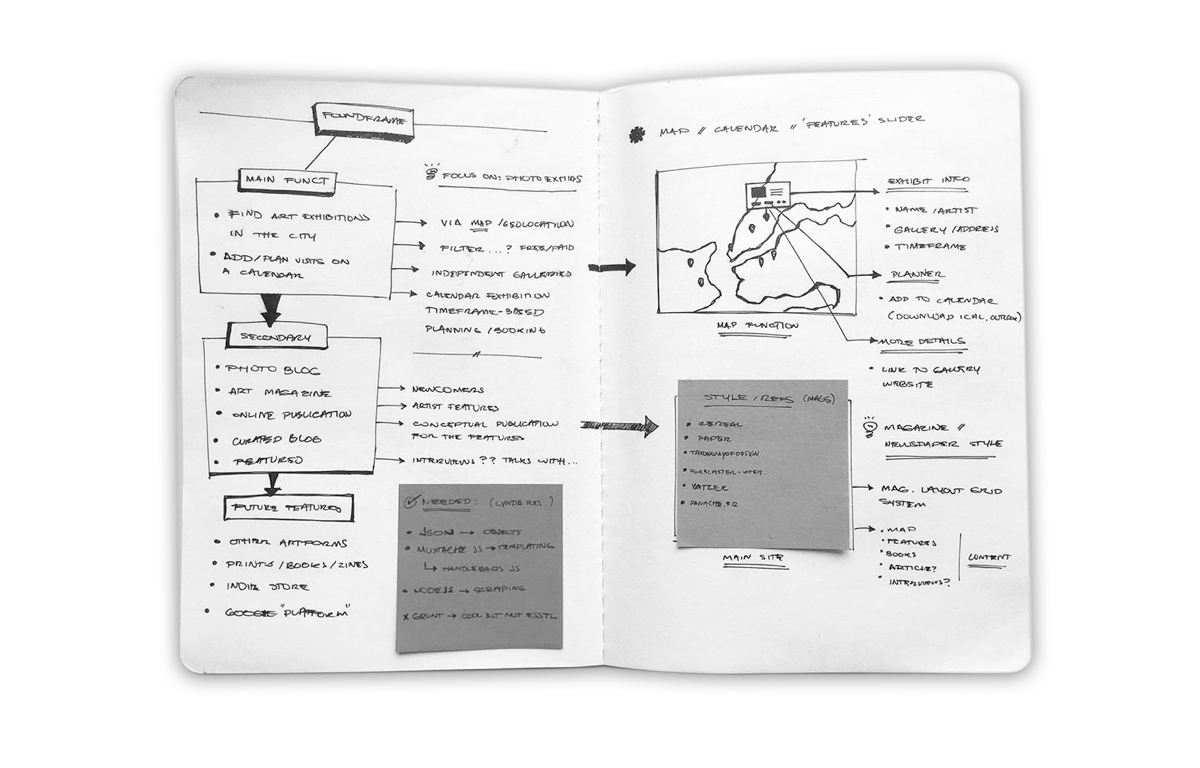 FOUNDFRAME
MAIN FUNCT
• FIND ART EXHIBITIONS
IN THE CITY
• ADD/PLAN VISITS ON
A CALENDAR
FOCUS ON: PHOTO EXHIBS
VIA MAP/GEOLOCATION
FILTER...? FREE/PAID
INDEPENDENT GALLERIES
CALENDAR EXHIBITION
TIMEFRAME-BASED
PLANNING/BOOKING
SECONDARY
• PHOTO BLOG
• ART MAGAZINE
• ONLINE PUBLICATION
• CURATED BLOG
• FEATURED
NEWCOMERS
ARTIST FEATURES
CONCEPTUAL PUBLICATION
FOR THE FEATURES
INTERVIEWS?? TALKS WITH...
FUTURE FEATURES
• OTHER ARTFORMS
• PRINTS/BOOKS/ZINES
• INDIE STORE
• GOOGLE "PLATFORM"
NEEDED: (LYNDA RES.)
• JSON → OBJECTS
• MUSTACHE JS → TEMPLATING
↳ HANDLEBARS JS
• NODEJS → SCRAPING
X GRUNT → COOL BUT NOT ESSTL
MAP // CALENDAR // 'FEATURES' SLIDER
MAP FUNCTION
EXHIBIT INFO
• NAME/ARTIST
• GALLERY/ADDRESS
• TIMEFRAME
PLANNER
• ADD TO CALENDAR
(DOWNLOAD ICAL, OUTLOOK)
MORE DETAILS
• LINK TO GALLERY
WEBSITE
STYLE/REFS (MAGS)
• CEREAL
• PAPER
• TAXONOMYOFDESIGN
• YATZER
MAIN SITE
MAGAZINE //
NEWSPAPER STYLE
MAG. LAYOUT GRID
SYSTEM
• MAP
• FEATURES
• BOOKS
• ARTICLE?
• INTERVIEWS?
CONTENT